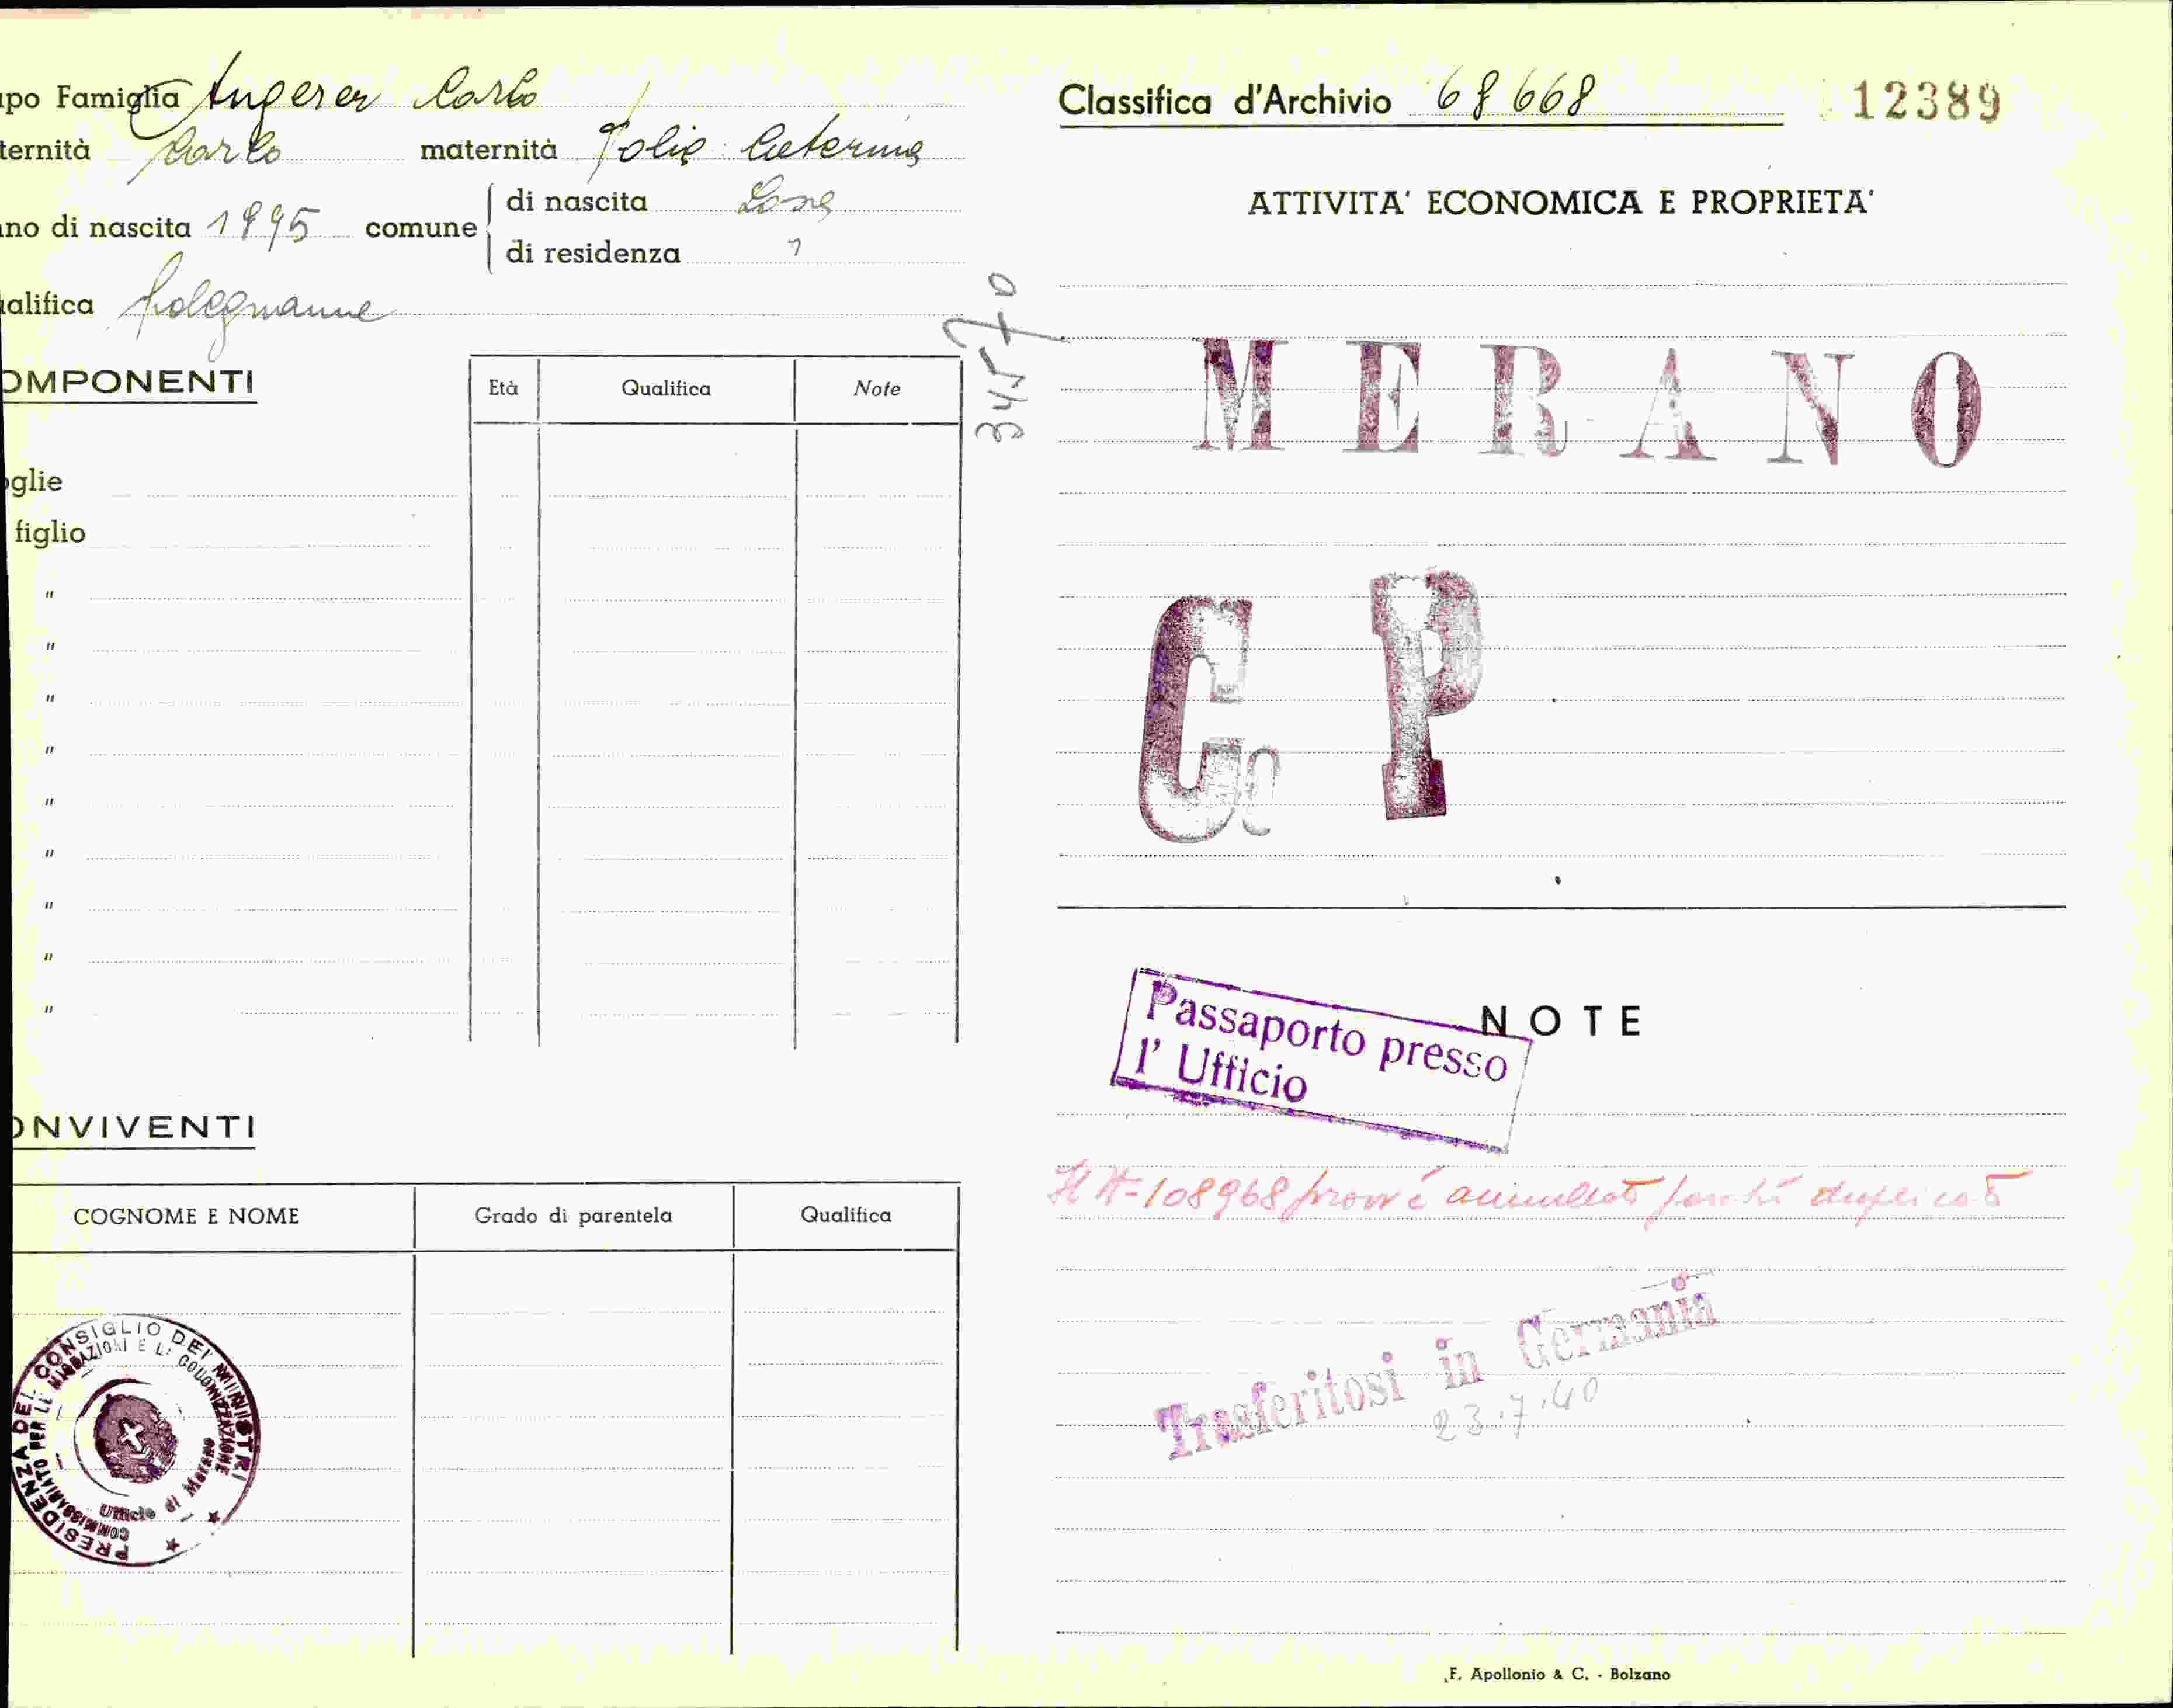 apo Famiglia Angerer Carlo
ternità Carlo maternità Caterina
nno di nascita 1895 comune di nascita Lana
di residenza "
ualifica falegname
OMPONENTI
Età Qualifica Note
oglie
figlio
"
"
"
"
"
"
"
"
"
ONVIVENTI
COGNOME E NOME Grado di parentela Qualifica
PRESIDENZA DEL CONSIGLIO DEI MINISTRI
COMMISSARIATO PER LE MIGRAZIONI E LA COLONIZZAZIONE
Ufficio di Merano
34570
Classifica d'Archivio 68668 12389
ATTIVITA' ECONOMICA E PROPRIETA'
MERANO
Co P
NOTE
Passaporto presso
l' Ufficio
108968 è annullato perché duplicato
Trasferitosi in Germania
23.7.40
F. Apollonio & C. - Bolzano